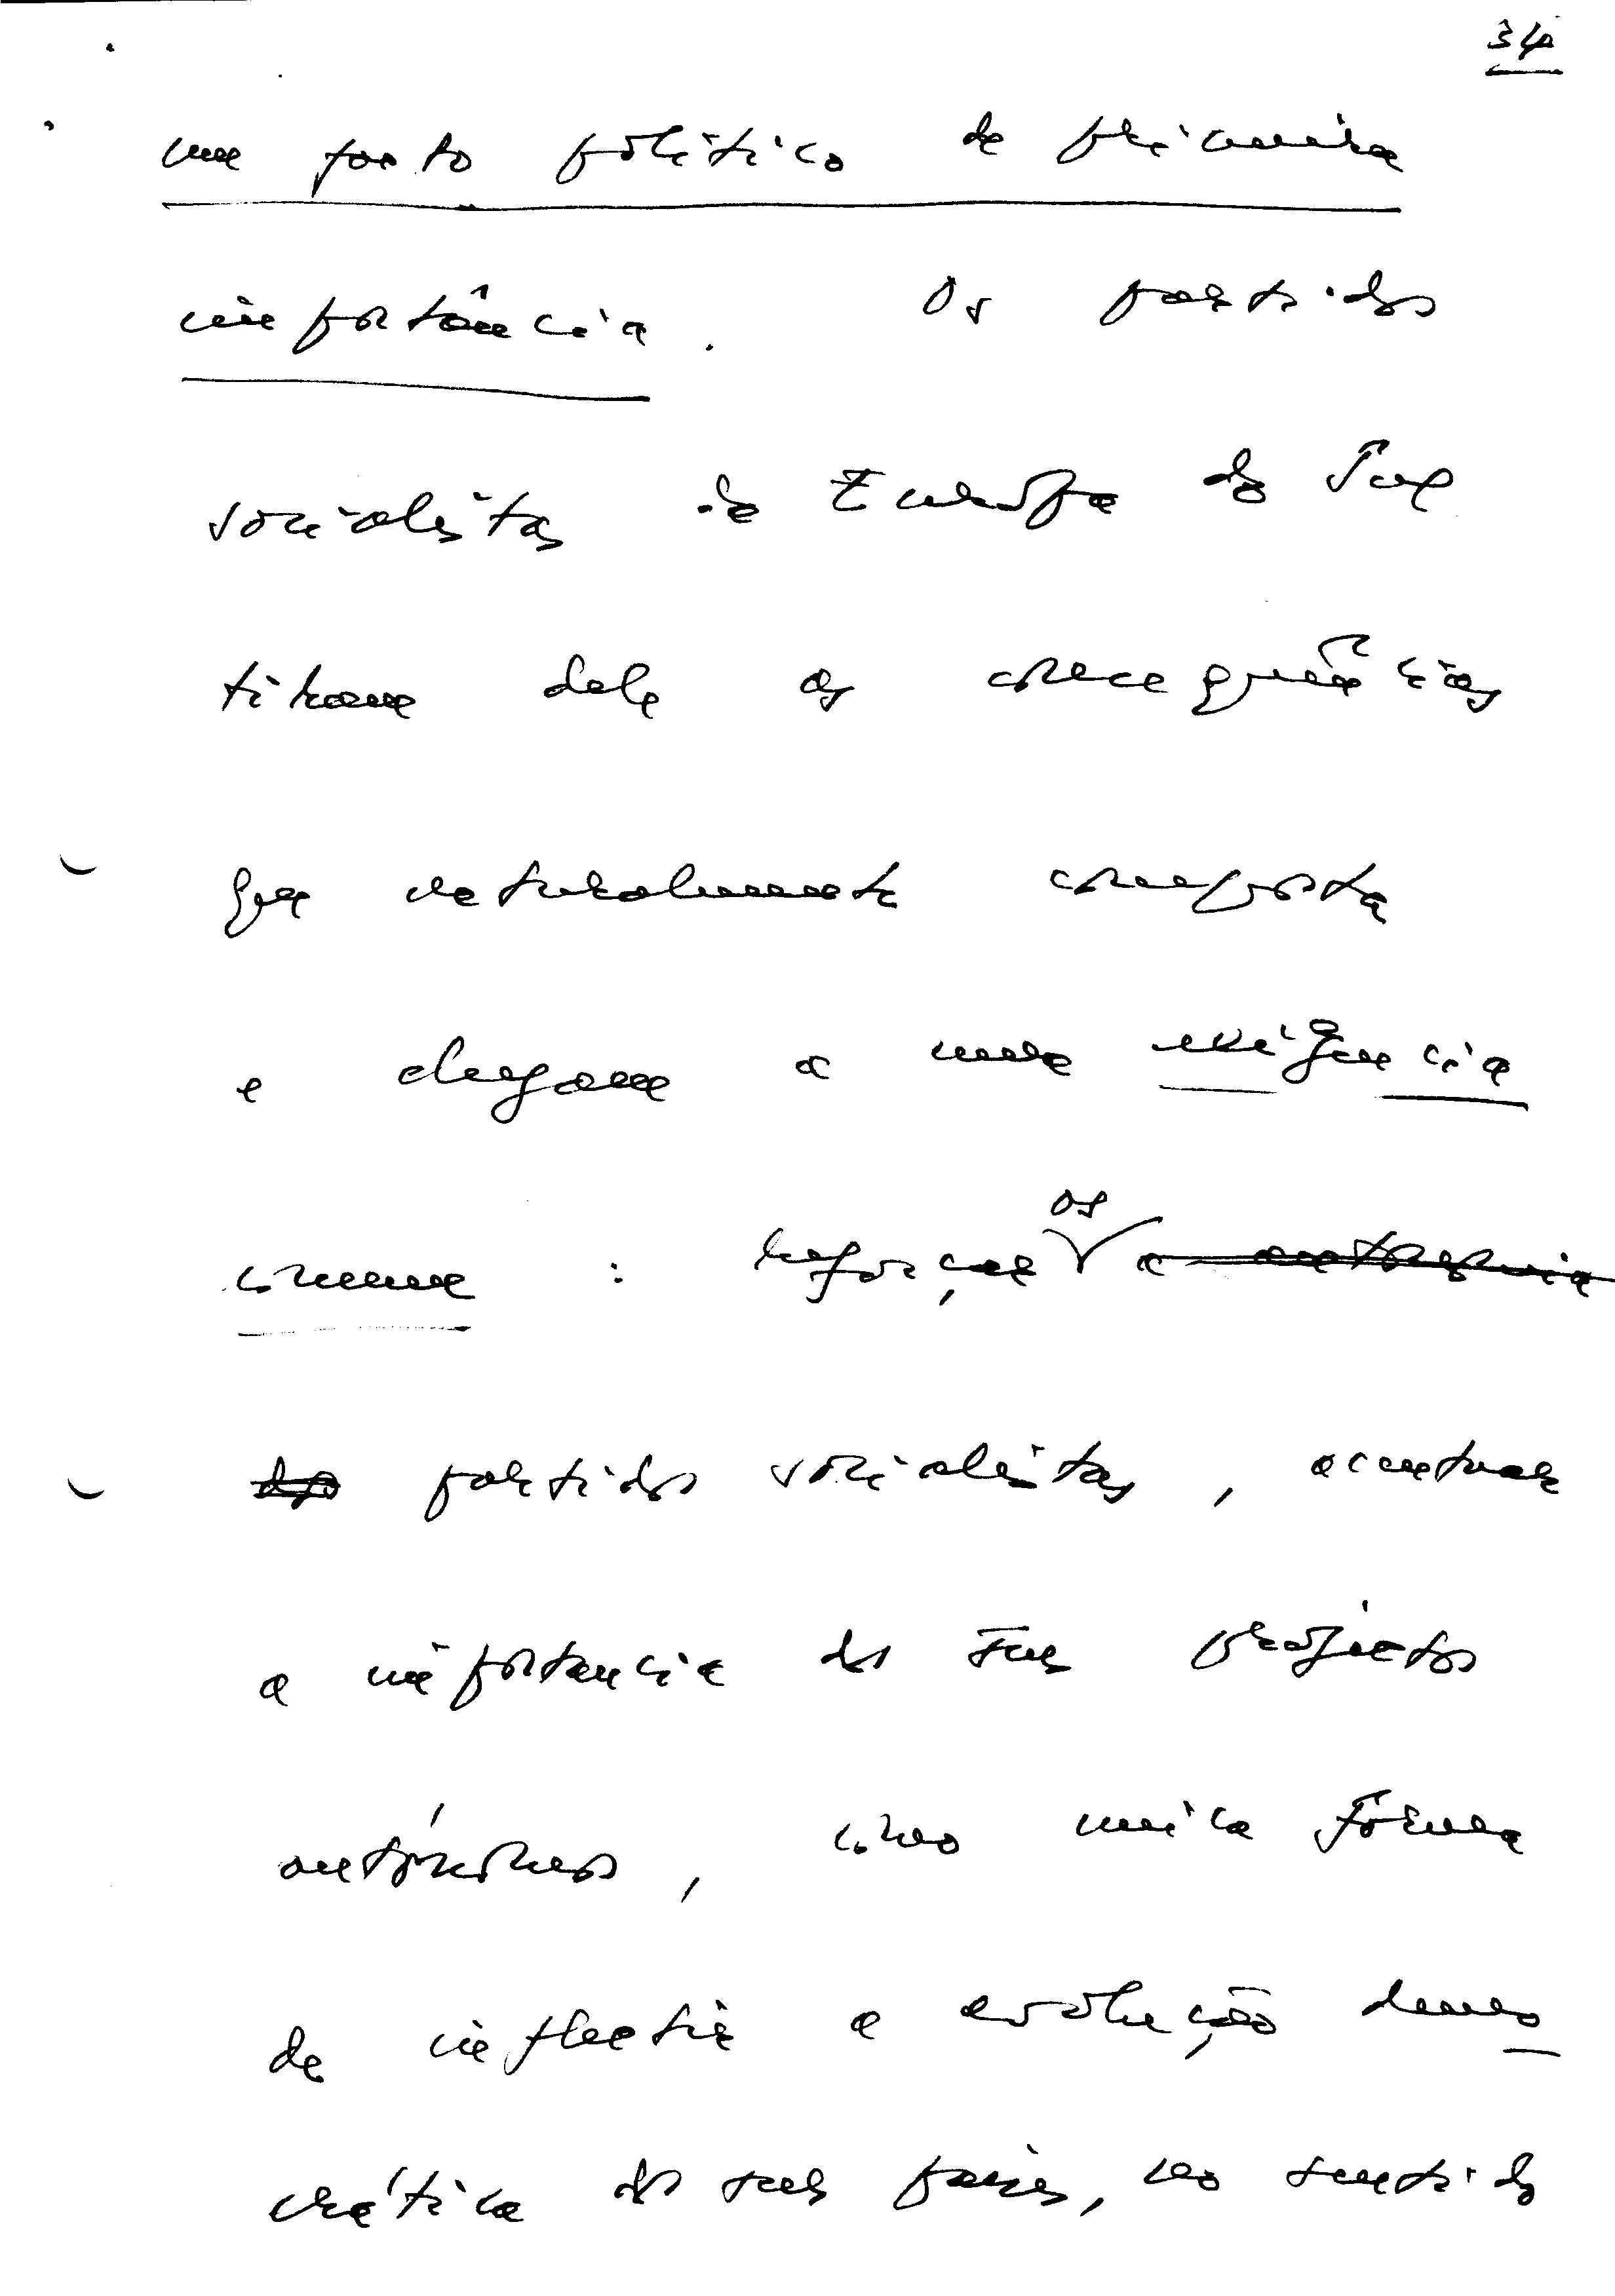 34
um facto político de primeira
importância. Os partidos
socialistas da Europa do Sul
tiram dele as consequências
que naturalmente comporta
e chegam a uma exigência
comum : reforçar os a autonomia
dos partidos socialistas, acentuar
a importancia dos seus projectos
autónomos, como unica fórma
de inflectir a evolução demo
crática dos seus países, no sentido